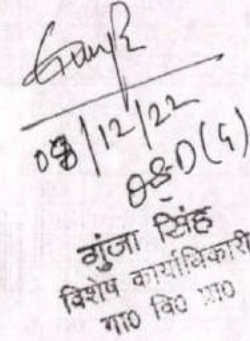 08/12/22
OSD(G)
गुंजा सिंह
विशेष कार्याधिकारी
गा० वि० प्रा०